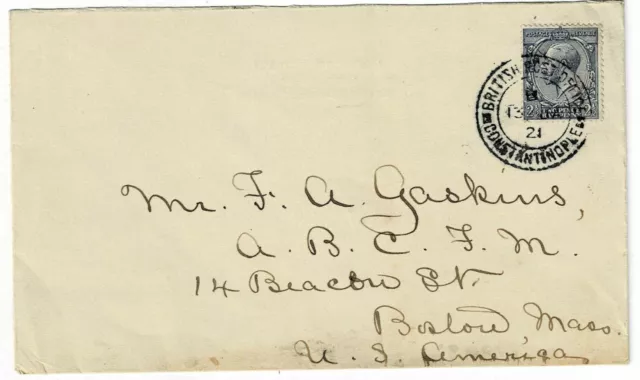 BRITISH POST OFFICE
13
21
CONSTANTINOPLE
Mr. F. A. Gaskins,
A. B. C. F. M.
14 Beacon St.
Boston, Mass.
U. S. America